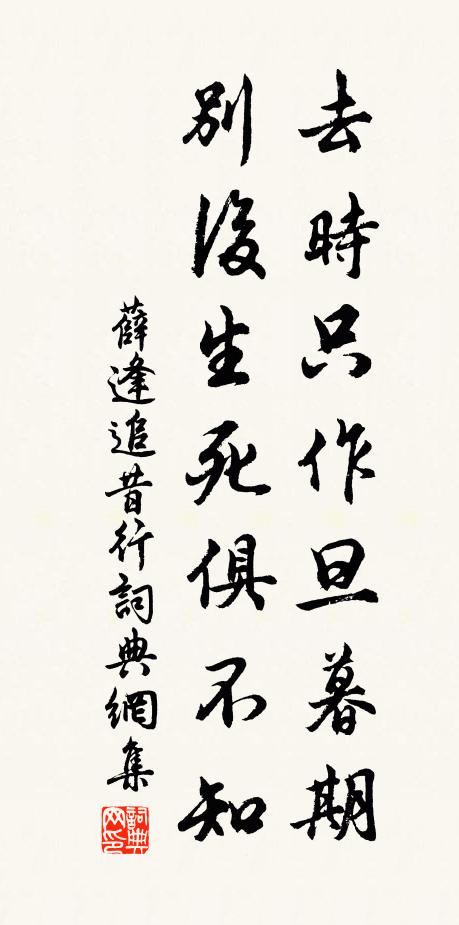 去時只作旦暮期
別後生死俱不知
薛逢追昔行詞典網集
詞典网印